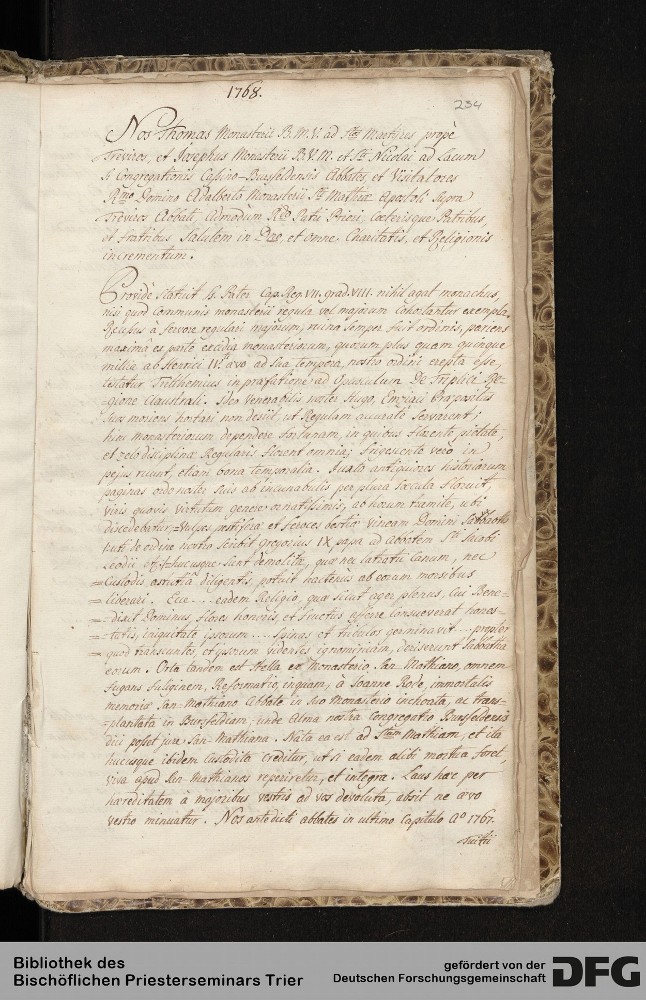 1768.
234
Nos Thomas Monasterii B.M.V. ad Stos Martyres propè
Treviros, et Josephus Monasterii B.V.M. et Sti Nicolai ad Lacum
è Congregationis Casino-Bursfeldensis Abbates, et Visitatores
Rmo Domino Adalberto Monasterii Sti Mathiæ Apostoli Supra
Treviros Abbati, Admodum Rdo Patri Priori, Cæterisque Patribus,
et Fratribus Salutem in Dno, et omne Charitatis, et Religionis
incrementum.
Providè statuit S. Pater Cap. Reg. VII. grad. VIII. nihil agat monachus,
nisi quod communis monasterii regula vel majorum cohortantur exempla.
Recessus à fervore regulari majorum, ruina semper fuit ordinis, pariens
maximâ ex parte excidia monasteriorum, quorum plus quam quinque
millia ab Henrici IVti ævo ad sua tempora, nostro ordini erepta esse,
testatur Trithemius in præfatione ad Opusculum De Triplici Re-
gione Claustrali. Ideo Venerabilis noster Hugo, Præpositus
suos moriens hortari non desiit, ut Regulam accuratè servarent;
hinc Monasteriorum dependere fortunam, in quibus florente pietate,
et zelo disciplinæ Regularis florent omnia; frigescente vero in
pejus ruunt, etiam bona temporalia. Justa antiquiores historiarum
paginas ordo noster suis ab incunabulis per plura sæcula floruit,
viris quovis virtutum genere ornatissimis, ab horum tramite, ubi
discedebatur, = vulpes pestiferæ et feroces bestiæ vineam Domini Sabbaoth
uti de ordine nostro scribit Gregorius IX papa ad Abbatem Sti Jacobi
Leodii hucusque sunt demoliti, quæ nec latratu canum, nec
= Custodis astutia diligentis, potuit hactenus ab eorum morsibus
= liberari. Ecce .... eadem Religio, quæ sicut ager plenus, cui Bene-
= dixit Dominus, flores honoris, et fructus afferre consueverat hones-
= tatis, iniquitate ipsorum .... Spinas et tribulos germinavit ... propter
= quod transeuntes, et ipsorum videntes ignominiam, deriserunt Sabbatha
eorum. Orta tandem est stella ex Monasterio San-Mathiano, omnem
fugans fuliginem, Reformatio, inquam, à Joanne Rode, immortalis
memoriæ San-Mathiano Abbate in suo Monasterio inchoata, ac trans-
-plantata in Bursfeldiam; unde alma nostra Congregatio Bursfeldensis
dici posset jure San-Mathiana. Nata ea est ad Stum Mathiam, et ita
hucusque ibidem custodita creditur, ut si eadem alibi mortua foret,
viva apud San-Mathianos reperiretur, et integra. Laus hæc per
hæreditatem à majoribus vestris ad vos devoluta, absit ne ævo
vestro minuatur. Nos antedicti abbates in ultimo Capitulo Ao 1767.
Bibliothek des
Bischöflichen Priesterseminars Trier
gefördert von der
Deutschen Forschungsgemeinschaft
DFG